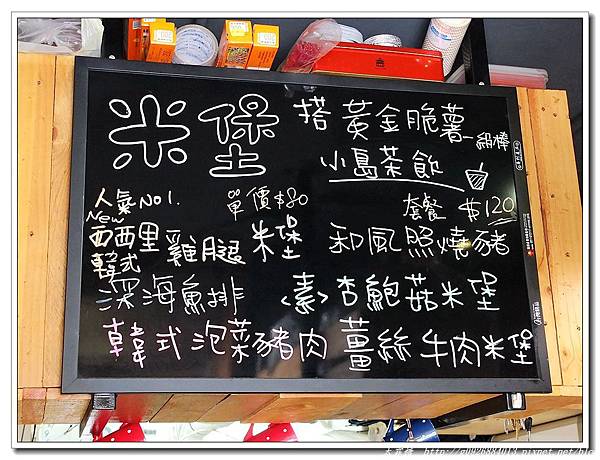 米堡 搭 黃金脆薯
小島茶飲
人氣No1. 單價$80 套餐 $120
New
西西里 雞腿 米堡 和風照燒豬
韓式
深海魚排 <素> 杏鮑菇米堡
韓式泡菜豬肉 薑絲牛肉米堡